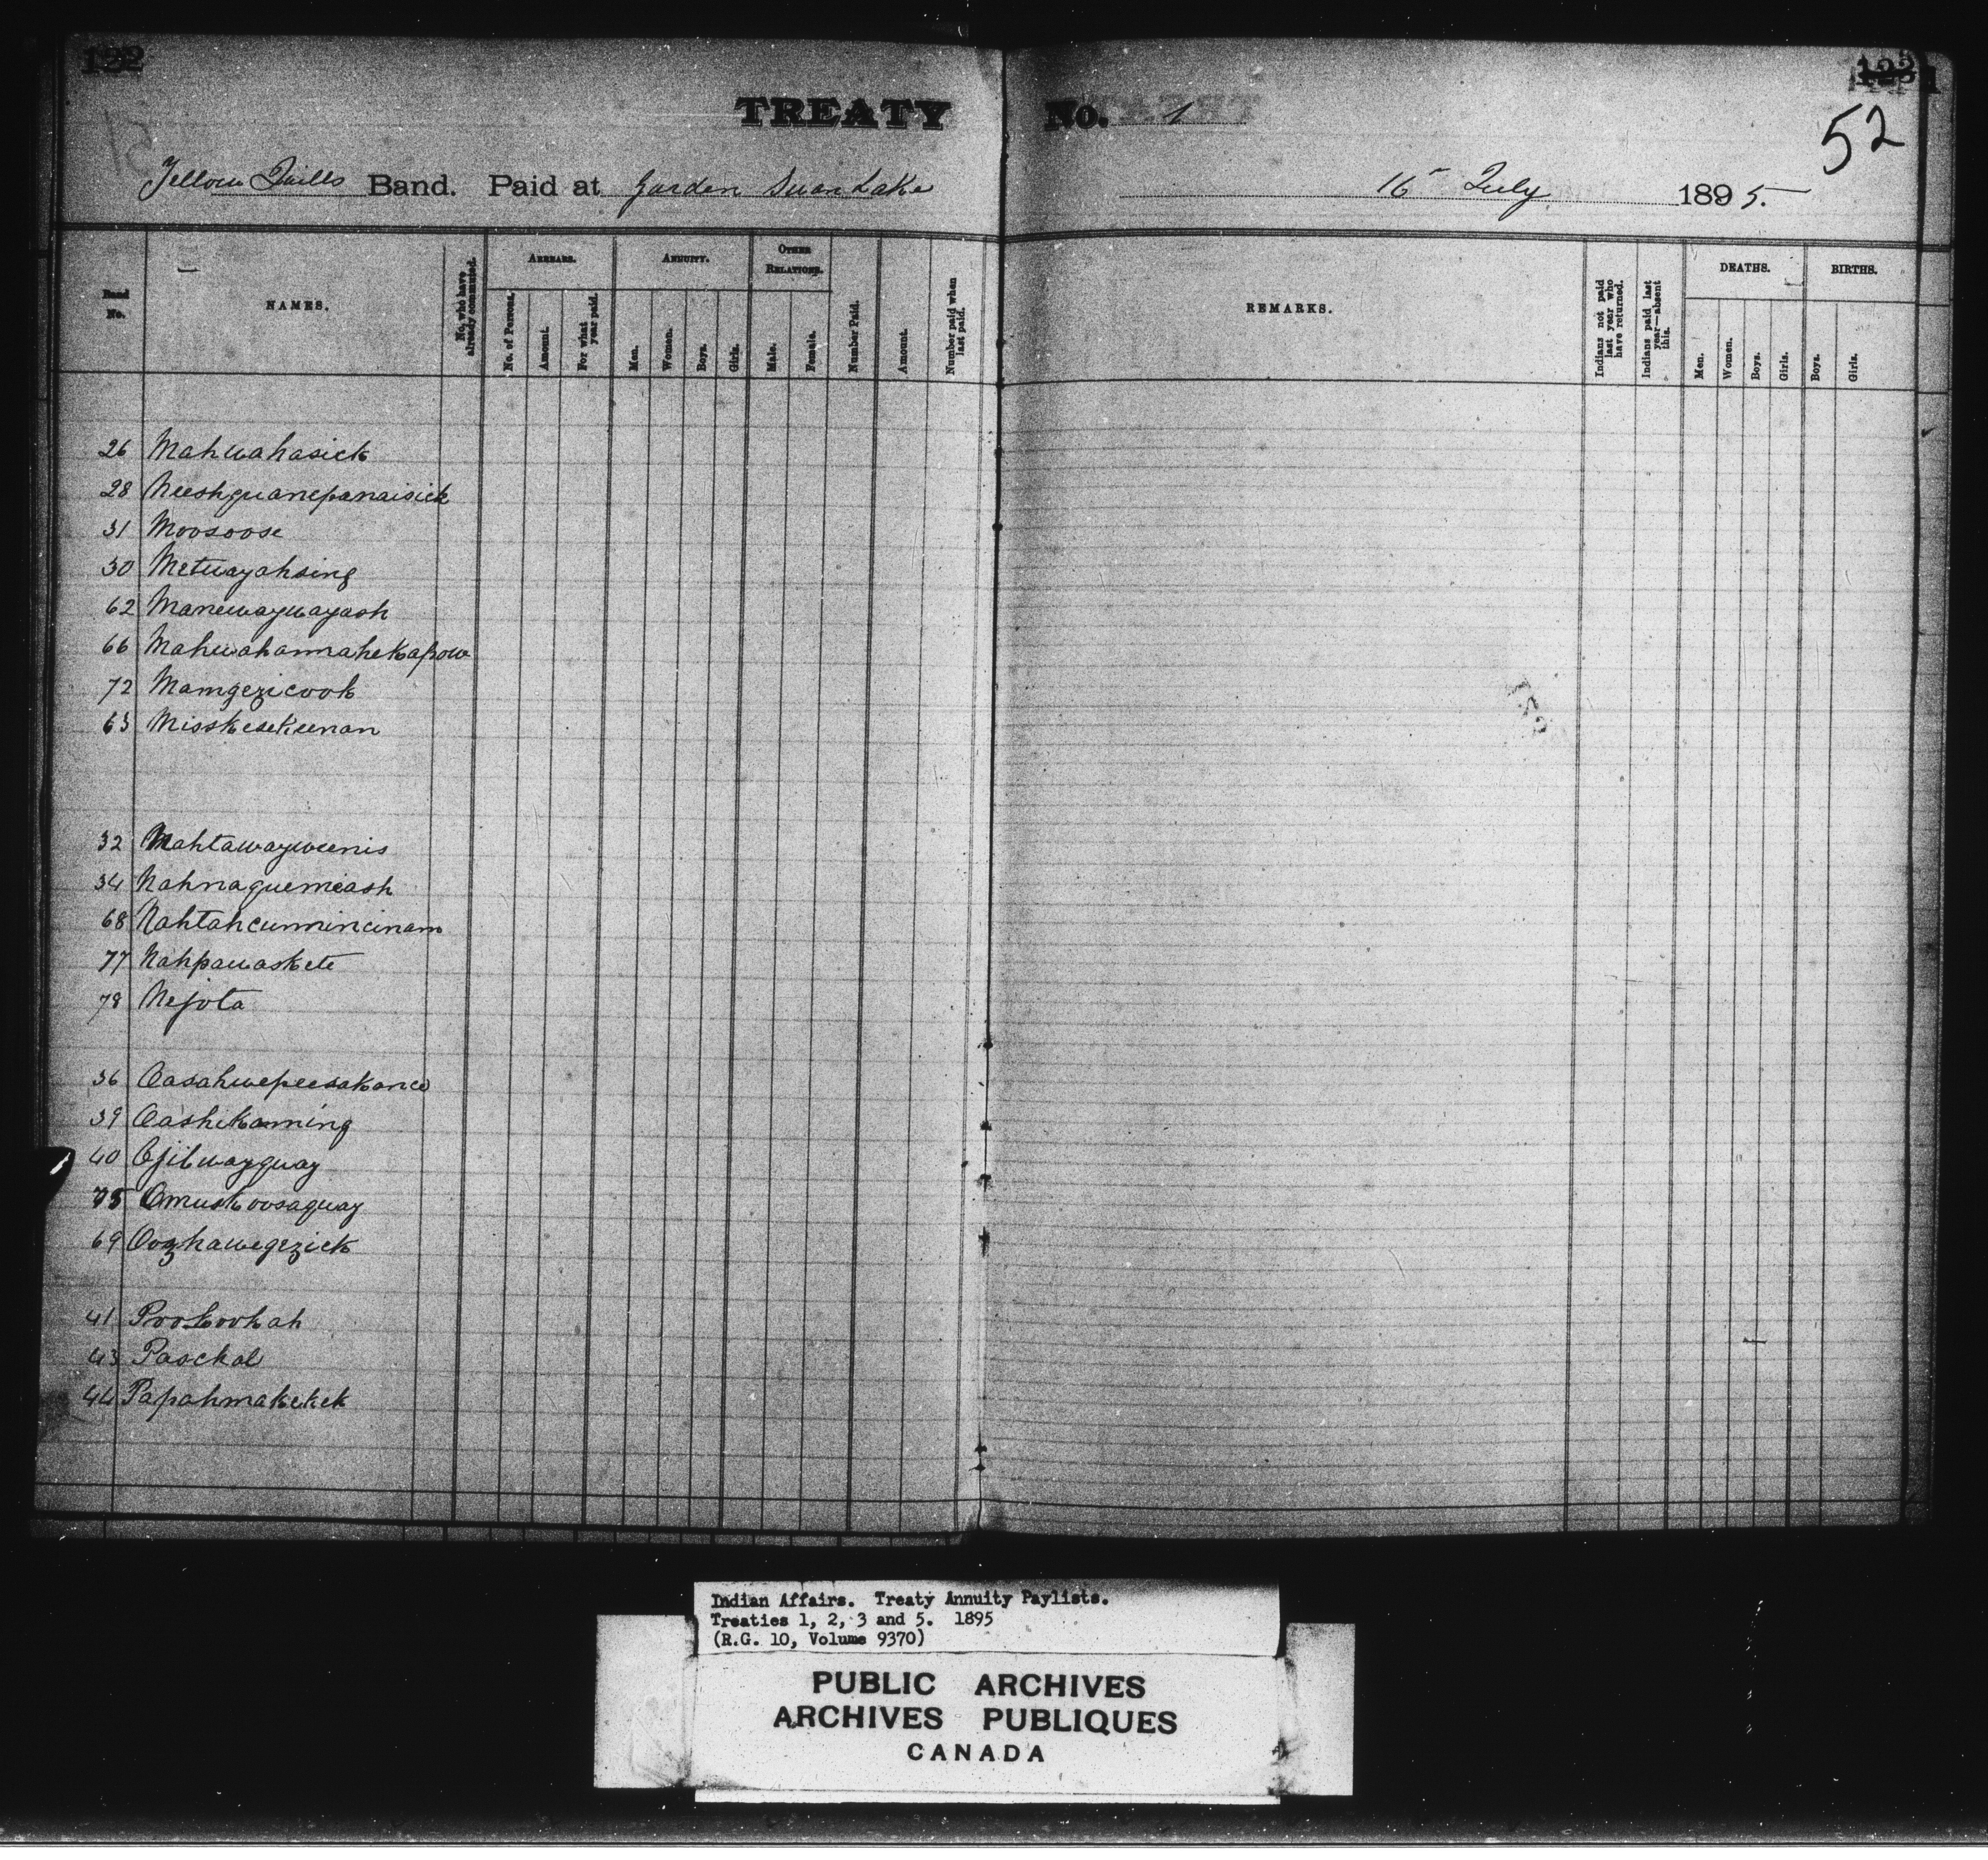 122
TREATY No. 1
52
Yellow Quills Band. Paid at Garden Swan Lake 16 July 1895.
Band No.
NAMES.
No. who have already commuted.
ARREARS.
No. of Persons.
Amount.
For what year paid.
ANNUITY.
Men.
Women.
Boys.
Girls.
OTHER RELATIONS.
Male.
Female.
Number Paid.
Amount.
Number paid when last paid.
REMARKS.
Indians not paid last year who have returned.
Indians paid last year—absent this.
DEATHS.
Men.
Women.
Boys.
Girls.
BIRTHS.
Boys.
Girls.
26 Mahwahasick
28 Neeshguanepanaisick
31 Moosoose
30 Metwayahsing
62 Manewaywayash
66 Mahwahannahekapow
72 Mamgezicook
63 Misskesekeenan
32 Nahtawayweenis
34 Nahnaguemeash
68 Nahtahcummincinam
77 Nahpawaskete
78 Nejota
36 Oasahwepeesakance
39 Oashekamming
40 Ojibwayquay
75 Omuskoosaquay
69 Oozhawegezick
41 Pookookah
43 Paschal
44 Papahmakekek
Indian Affairs. Treaty Annuity Paylists.
Treaties 1, 2, 3 and 5. 1895
(R.G. 10, Volume 9370)
PUBLIC ARCHIVES
ARCHIVES PUBLIQUES
CANADA